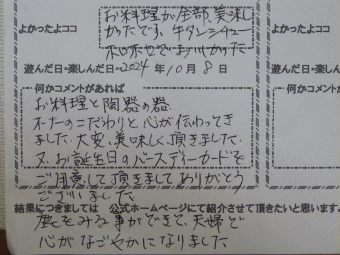 お料理が全部、美味し
よかったよココ
かったです。牛タンシチュー
遊んだ日・楽しんだ日・2024年10月8日
何かコメントがあれば
お料理と陶器の器
オーナーのこだわりと心が伝わってき
ました。大変、美味しく頂きました。
又、お誕生日のバースディーカードを
ご用意して頂きましてありがとう
ございました
結果につきましては 公式ホームページにて紹介させて頂きたいと思います。
鹿をみる事ができて、夫婦で
心がなごやかになりました